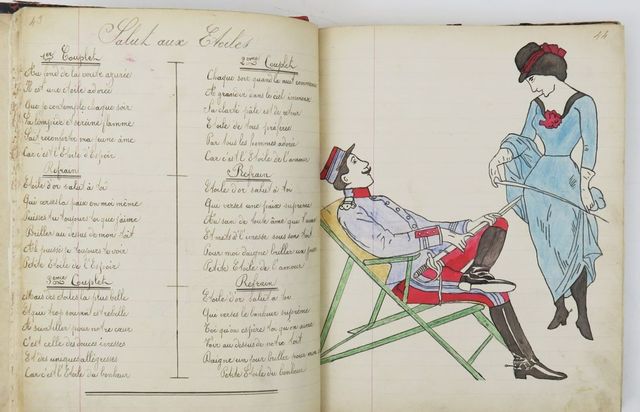 43
Salut aux Etoiles
1er Couplet
Au fond de la voute azurée
Il est une étoile adorée
Que je contemple chaque soir
Sa lumière et sereine flamme
Fait reconforter ma jeune âme
Car c'est l'Etoile d'Espoir
Refrain
Etoile d'or salut à toi
Qui verses la paix en moi même
Puisses tu toujours toi que j'aime
Briller au dessus de mon toit
Et puissé je toujours te voir
Petite Etoile de l'Espoir
3eme Couplet
Mais des étoiles la plus belle
Et qui trop souvent est rebelle
A scintiller pour notre cœur
C'est celle des douces ivresses
Et des uniques allégresses
Car c'est l'Etoile du bonheur
2eme Couplet
Chaque soir quand la nuit commence
A grandir dans le ciel immense
Sa clarté pâle est de retour
Etoile de tous préférée
Par tous les hommes adorée
Car c'est l'Etoile de l'amour
Refrain
Etoile d'or salut à toi
Que verses une paix supreme
Au sein de toute âme qui t'aime
Et mets d'ivresse sous son toit
Pour moi daigne briller un jour
Petite Etoile de l'amour
Refrain
Etoile d'or salut à toi
Que verses le bonheur suprême
Toi qu'on espère toi qu'on aime
Voir au dessus de notre toit
Daigne un jour briller pour moi
Petite Etoile du bonheur
44